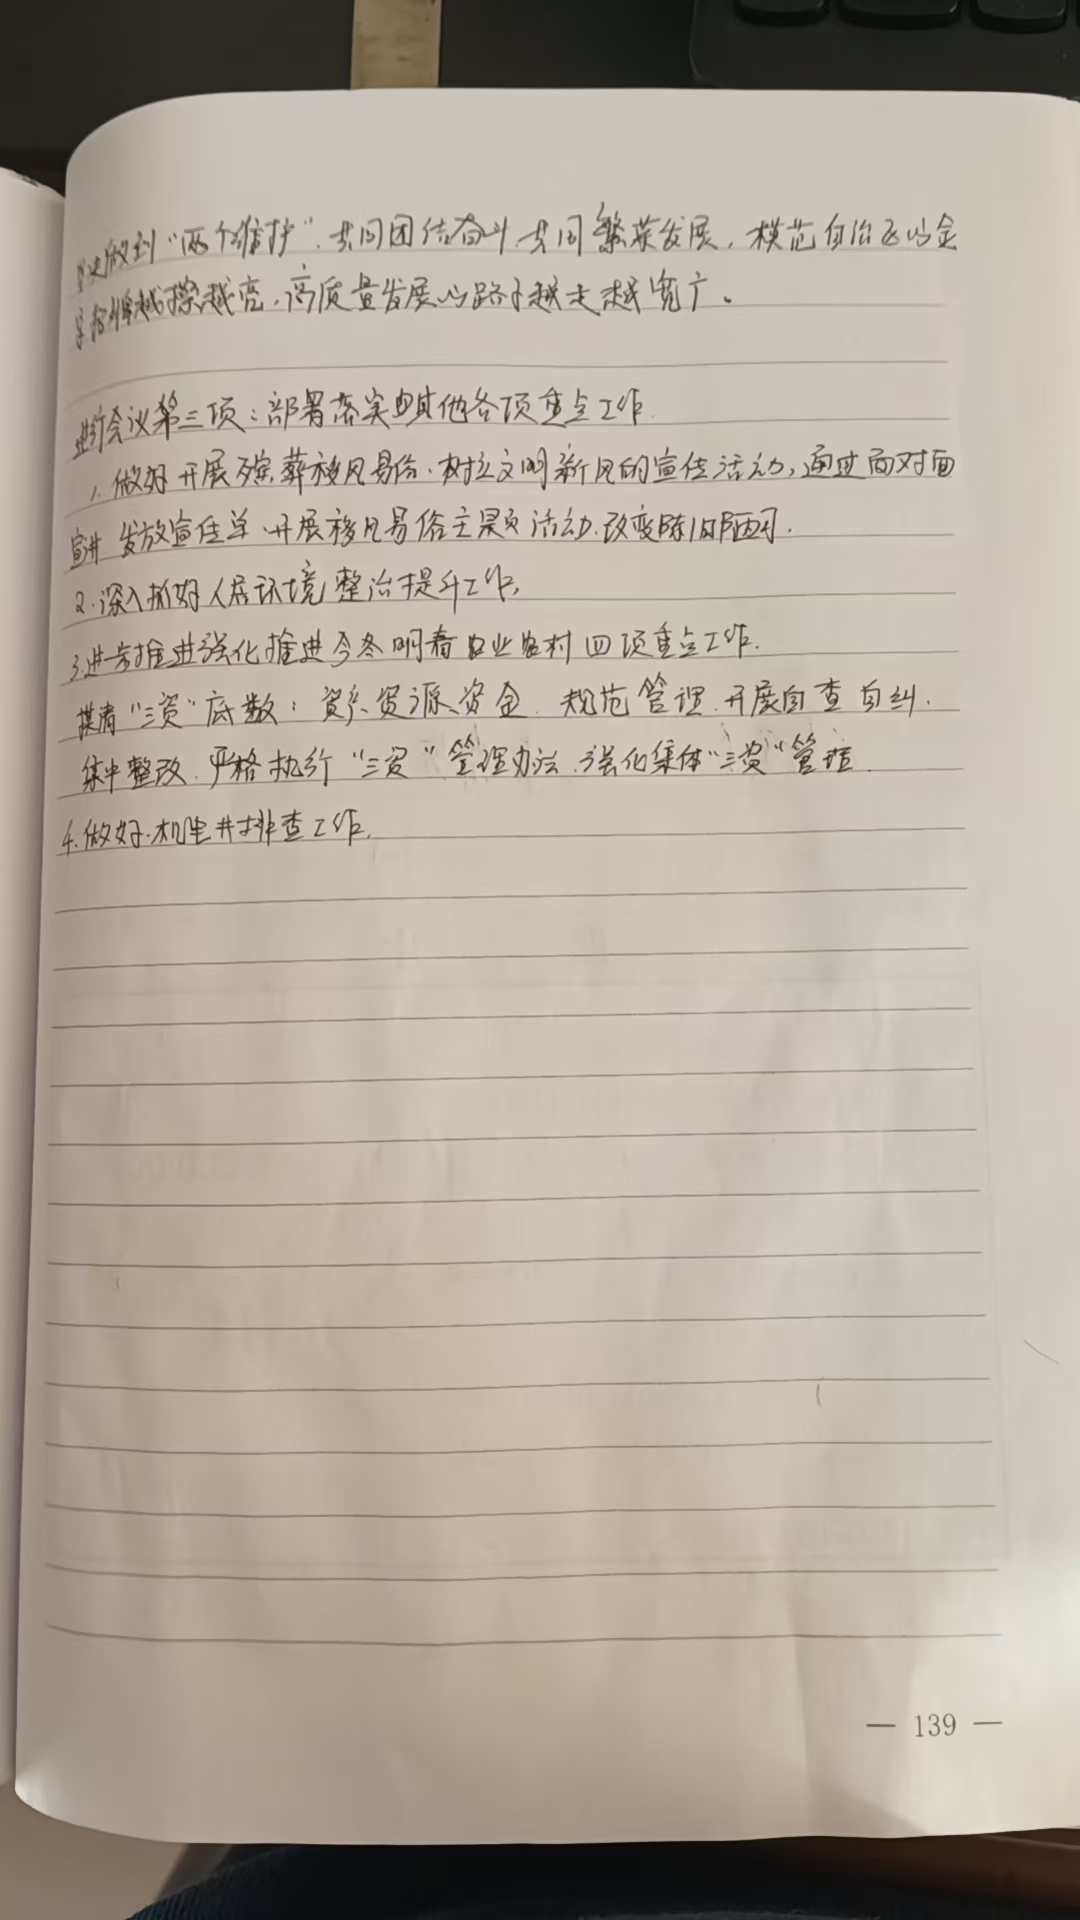 坚决做到“两个维护”、共同团结奋斗、共同繁荣发展，模范自治区的金
字招牌越擦越亮，高质量发展的路子越走越宽广。
进行会议第三项：部署落实其他各项重点工作.
1. 做好开展殡葬移风易俗、树立文明新风的宣传活动，通过面对面
宣讲 发放宣传单、开展移风易俗主题活动.改变陈旧陋习.
2.深入抓好人居环境整治提升工作，
3.进一步推进强化推进今冬明春农业农村四项重点工作.
摸清“三资”底数：资产、资源、资金.规范管理.开展自查自纠.
集中整改.严格执行“三资”管理办法.强化集体“三资”管理.
4.做好.机电井排查工作.
— 139 —